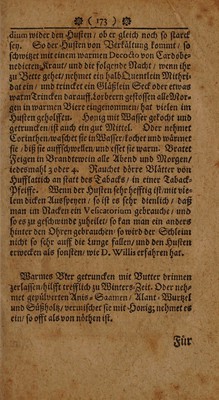 ❀ ( 173 ) ❀
dium wider den Husten / ob er gleich noch so starck
sey. So der Husten von Verkältung kommt / so
schwitzet mit einem warmen Dococto von Cardobe-
nedicten Kraut / und die folgende Nacht / wenn ihr
zu Bette gehet / nehmet ein halb Quentlein Mithri-
dat ein / und trincket ein Gläßlein Sect oder etwas
warm Trincken darauff. Lorbeern gestossen alle Mor-
gen in warmen Biere eingenommen / hat vielen im
Husten geholffen. Honig mit Wasser gekocht und
getruncken / ist auch ein gut Mittel. Oder nehmet
Corinthen, waschet sie in Wasser / kochet und wärmet
sie / biß sie aufschwellen / und esset sie warm. Bratet
Feigen in Brandtewein alle Abend und Morgen /
jedesmahl 3 oder 4. Rauchet dörre Blätter von
Hufflattich an statt des Tabacks / in einer Taback-
Pfeiffe. Wenn der Husten sehr hefftig ist / mit vie-
lem dicken Ausspeyen / so ist es sehr dienlich / daß
man im Nacken ein Vesicatorium gebrauche / und
so es zu geschwinde zuheilet / so kan man ein anders
hinter den Ohren gebrauchen / so wird der Schleim
nicht so sehr auff die Lunge fallen / und den Husten
erwecken als sonsten / wie D. Willis erfahren hat.
Warmes Bier getruncken mit Butter drinnen
zerlassen / hilfft trefflich zu Winters-Zeit. Oder neh-
met gepülverten Anis-Saamen / Alant-Wurtzel
und Süßholtz / vermischet sie mit Honig / nehmet es
ein / so offt als von nöthen ist.
Für